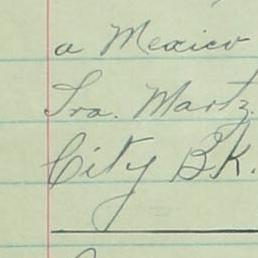 a Mexico
Sra. Martz.
City BK.